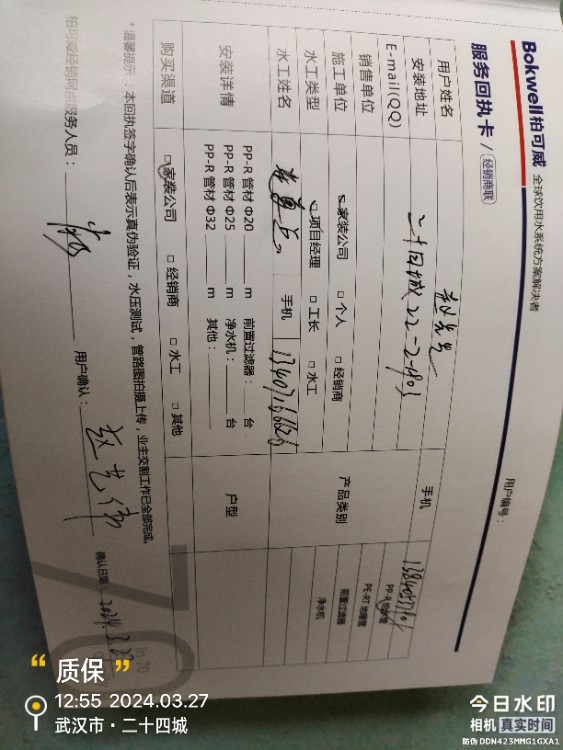 Bokwell 柏可威 全球饮用水系统方案解决者
服务回执卡 / 经销商联
用户编号：
用户姓名 赵先生 手机
安装地址 二十四城22-2403
E-mail(QQ)
销售单位
施工单位 家装公司 个人 经销商 产品类别
PP-R 给水管
PE-RT 地暖管
前置过滤器
净水机
水工类型 项目经理 工长 水工
水工姓名 手机
安装详情 PP-R 管材 Φ20 m 前置过滤器： 台 户型
PP-R 管材 Φ25 m 净水机： 台
PP-R 管材 Φ32 m 其他：
购买渠道 家装公司 经销商 水工 其他
* 温馨提示：本回执签字确认后表示真伪验证，水压测试，管路图拍摄上传，业主交割工作已全部完成。
柏可威经销网点服务人员： 用户确认： 确认日期
“ 质保 ”
12:55 2024.03.27
武汉市·二十四城
今日水印
相机 真实时间
防伪 DDN423MMG1GXA1